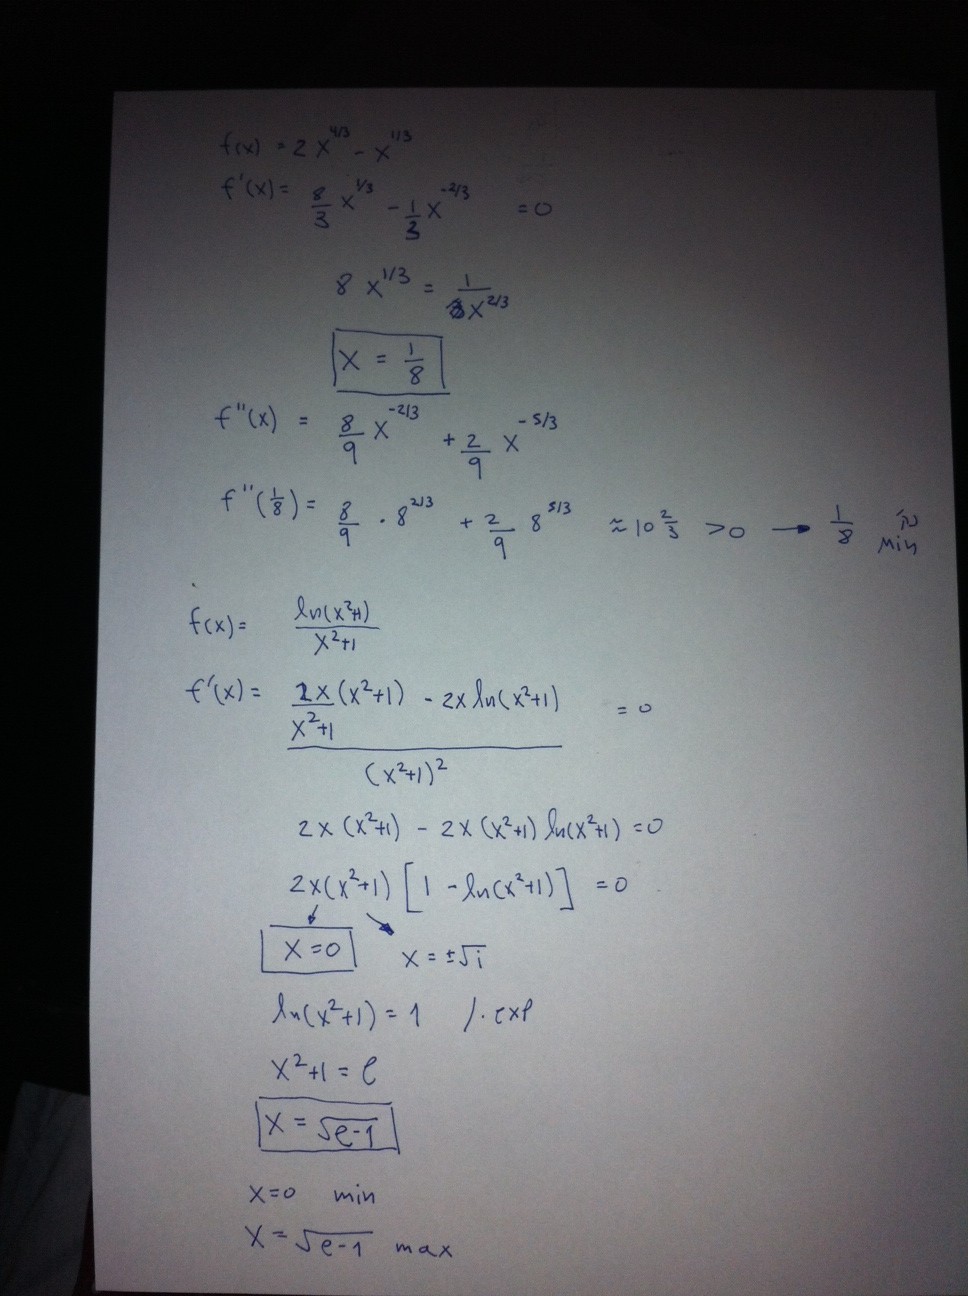 f(x) = 2x^4/3 - x^1/3
f'(x) = 8/3 x^1/3 - 1/3 x^-2/3 = 0
8 x^1/3 = 1/x^2/3
x = 1/8
f''(x) = 8/9 x^-2/3 + 2/9 x^-5/3
f''(1/8) = 8/9 · 8^2/3 + 2/9 8^5/3 ≈ 10 2/3 > 0 → 1/8 min
f(x) = ln(x²+1) / x²+1
f'(x) = 2x/x²+1 (x²+1) - 2x ln(x²+1) / (x²+1)² = 0
2x(x²+1) - 2x(x²+1) ln(x²+1) = 0
2x(x²+1) [1 - ln(x²+1)] = 0
x=0 x = ±√i
ln(x²+1) = 1 /· exp
x²+1 = e
x = √e-1
x=0 min
x = √e-1 max